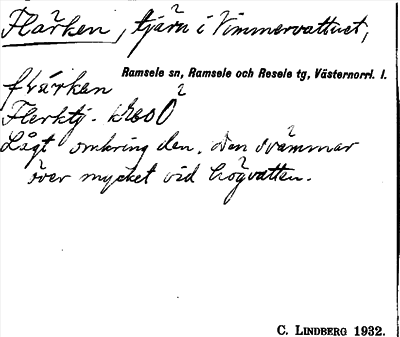 Flärken, tjärn i Vimmervattnet,
Ramsele sn, Ramsele och Resele tg, Västernorrl. l.
flärken
Flerktj.
Lågt omkring den. Den svämmar
över mycket vid högvatten.
C. LINDBERG 1932.